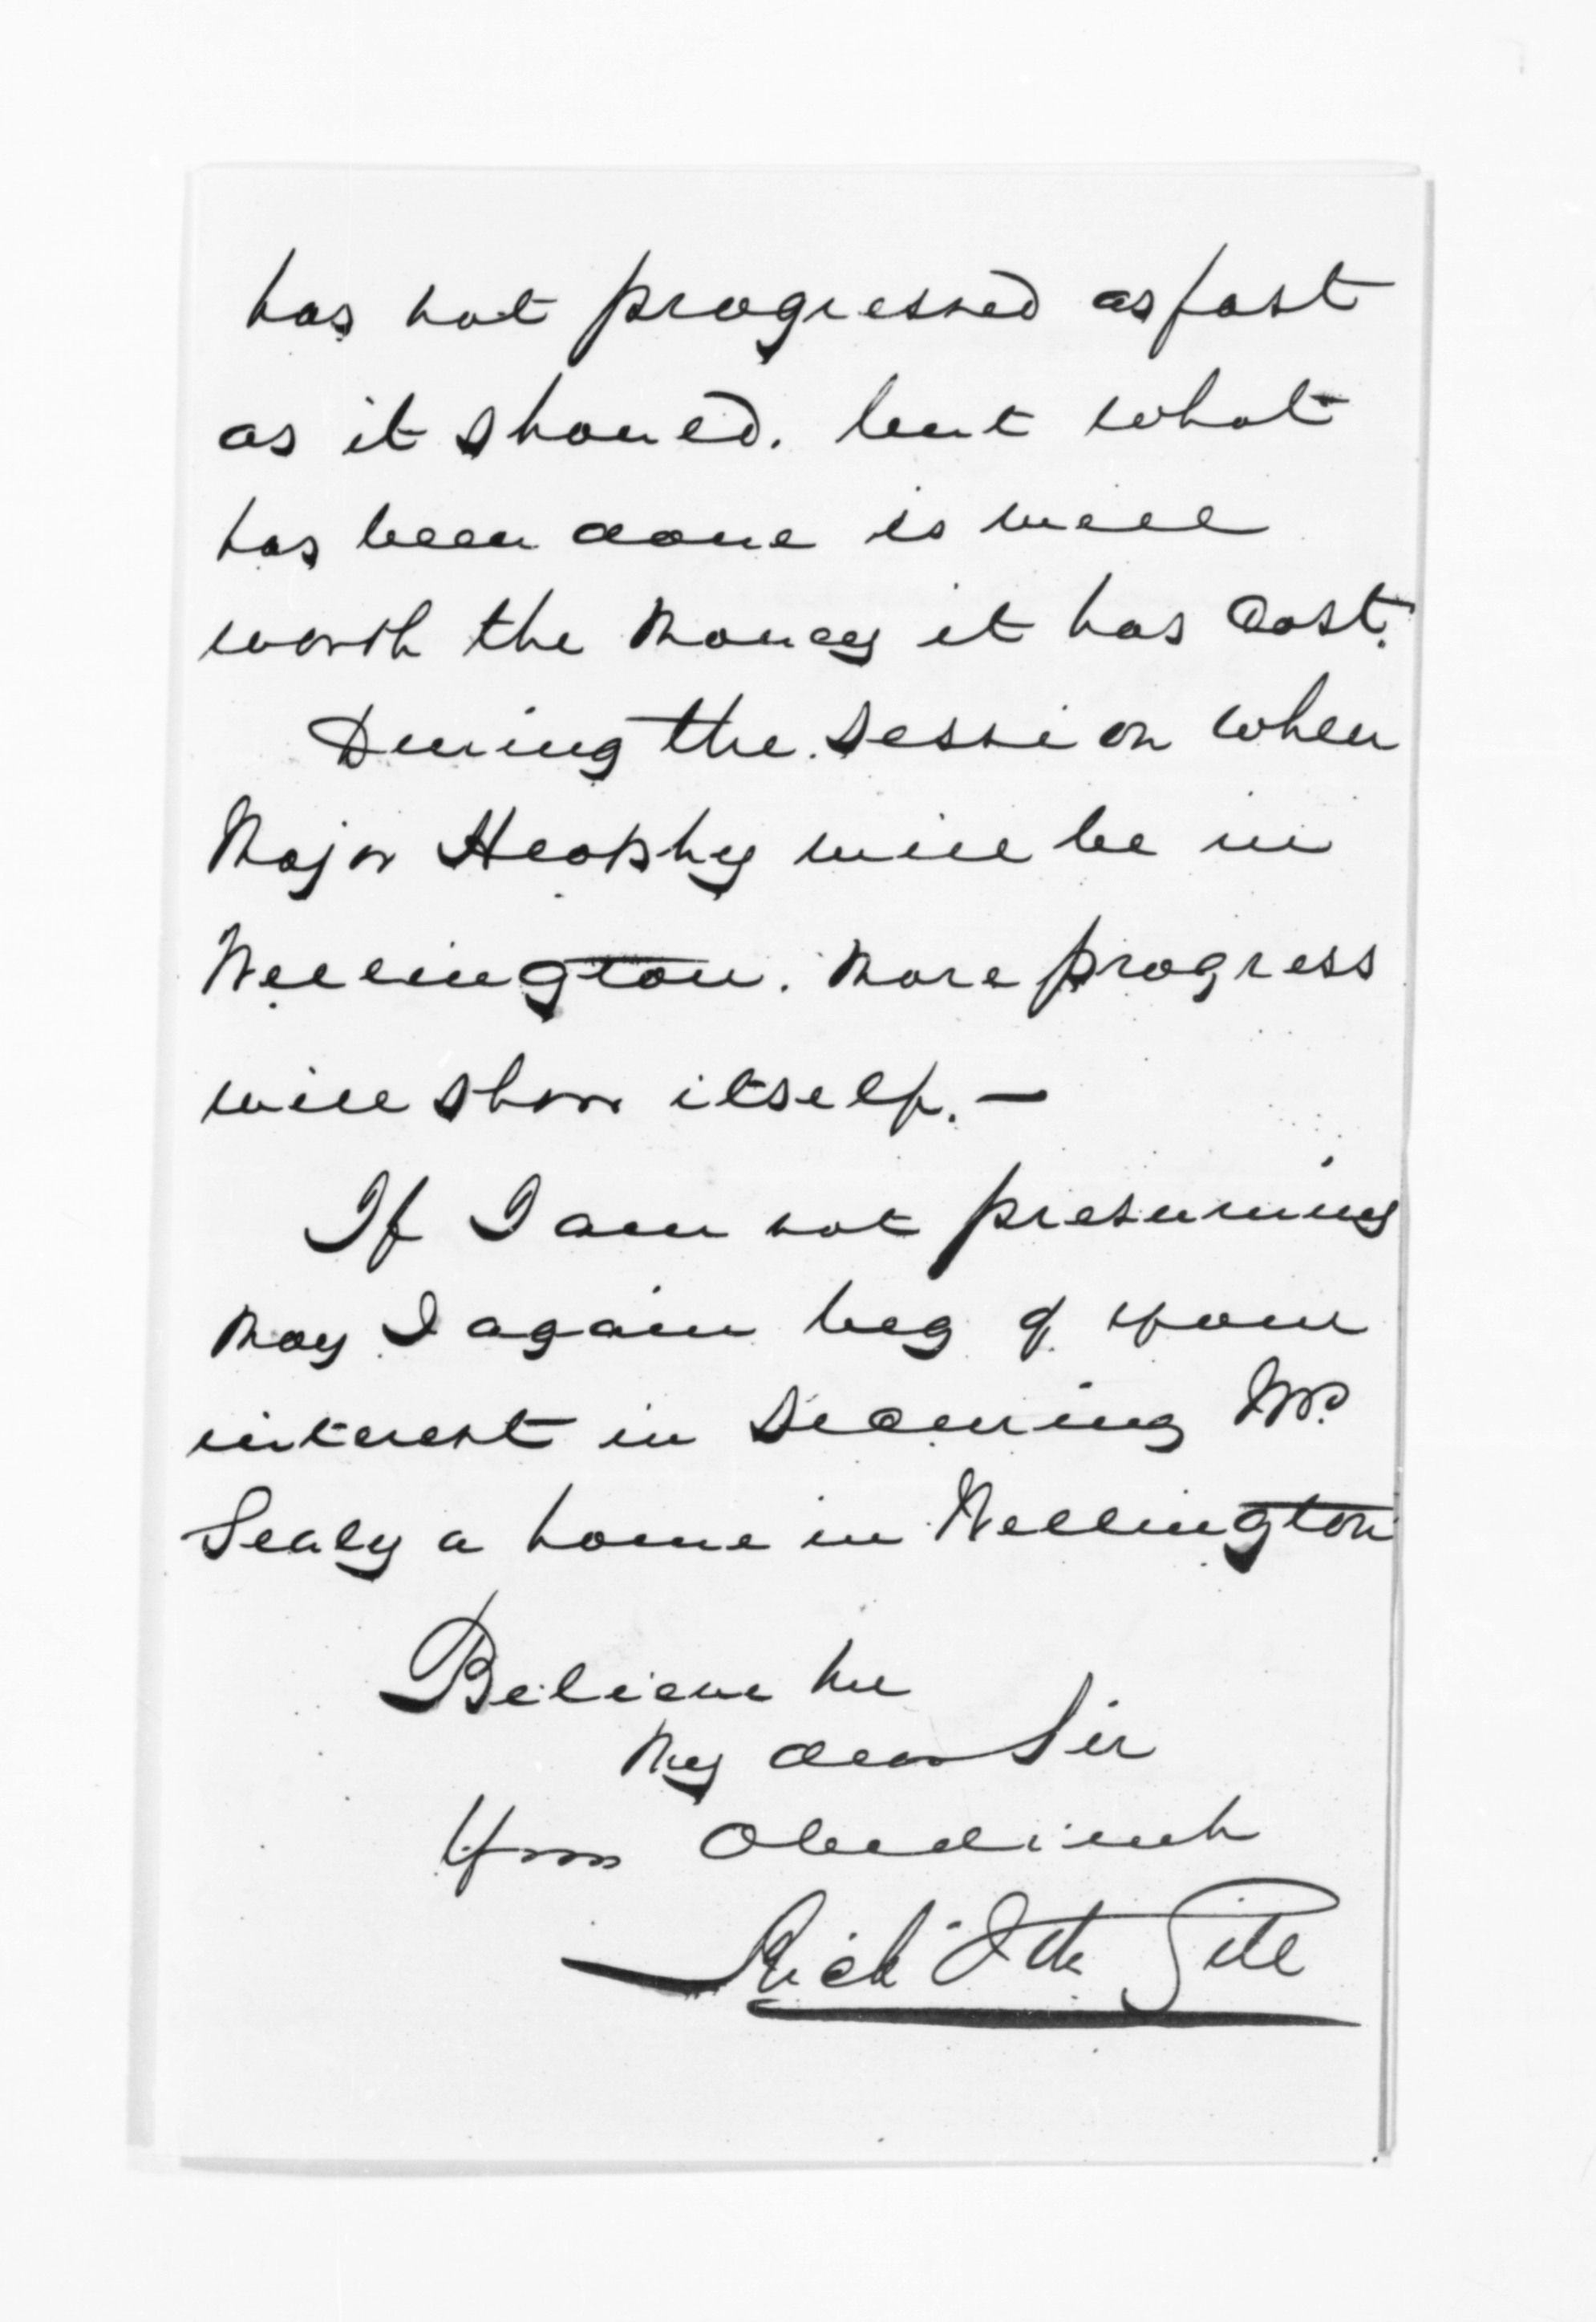 has not progressed as fast
as it should. but what
has been done is well
worth the money it has Cost.
During the Session when
Major Heaphy will be in
Wellington. More progress
will show itself. —
If I am not presuming
may I again beg of your
interest in Securing Mr.
Sealy a home in Wellington
Believe me
My dear Sir
Your Obedient
Rich